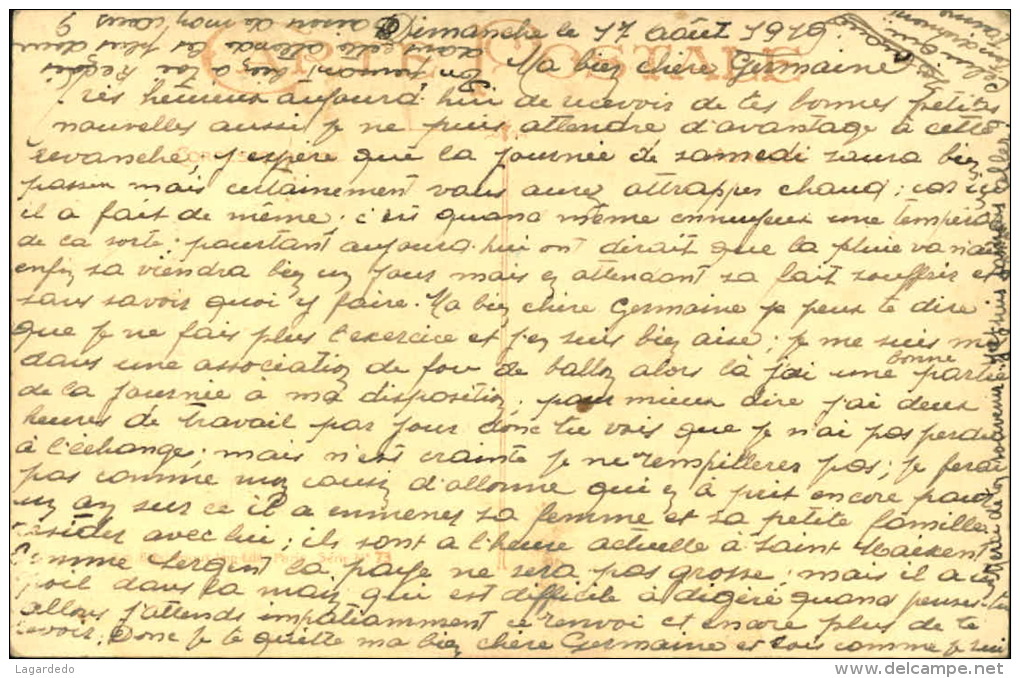 Dimanche le 17 août 1919
Ma bien chère Germaine
Très heureux aujourd'hui de recevoir de tes bonnes petites
nouvelles aussi je ne puis attendre d'avantage à cette
revanche, j'espère que la journée de samedi saura bien
passer mais certainement vous aurez attrapper chaud; car ici
il a fait de même. c'est quand même ennuyeux une tempera
de la sorte; pourtant aujourd'hui ont dirait que la pluie va
enfin sa viendra bien un jour mais en attendant sa fait souffrir et
sans savoir quoi y faire. Ma bien chère Germaine je peux te dire
que je ne fais plus l'exercice et j'en suis bien aise; je me suis mis
dans une association de foue de ballon alors là j'ai une bonne partie
de la journée à ma disposition; pour mieux dire j'ai deux
heures de travail par jour donc tu vois que je n'ai pas perdu
à l'échange; mais n'est crainte je ne rempillerer pas; je ferai
pas comme mon cousin d'allonne qui en à prit encore pour
un an sur ce il a enmener sa femme et sa petite famille
résider avec lui; ils sont a l'heure actuelle à Saint Maixent
Comme sergent la paye ne sera pas grosse; mais il a un
poil dans la main qui est difficile à digéré quand penses-tu
allons j'attends impatiamment ce renvoi et encore plus de te
revoir. Donc je te quitte ma bien chère Germaine et sois comme je suis
CARTE POSTALE
Série N° 73
Lagardedo
delcampe.net